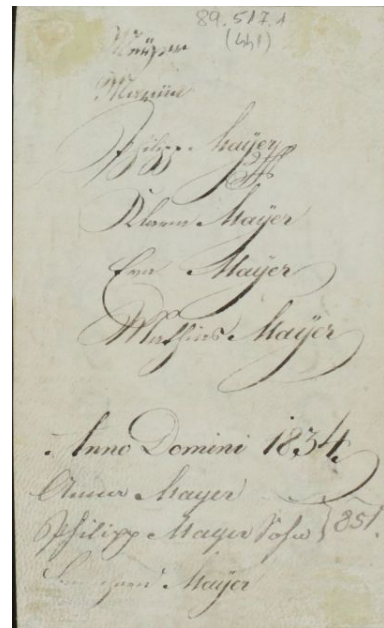 89.517.1
(441)
Philipp Mayer
Klara Mayer
Eva Mayer
Mathias Mayer
Anno Domini 1834
Anna Mayer
Philipp Mayer Sohn } 851.
Mayer